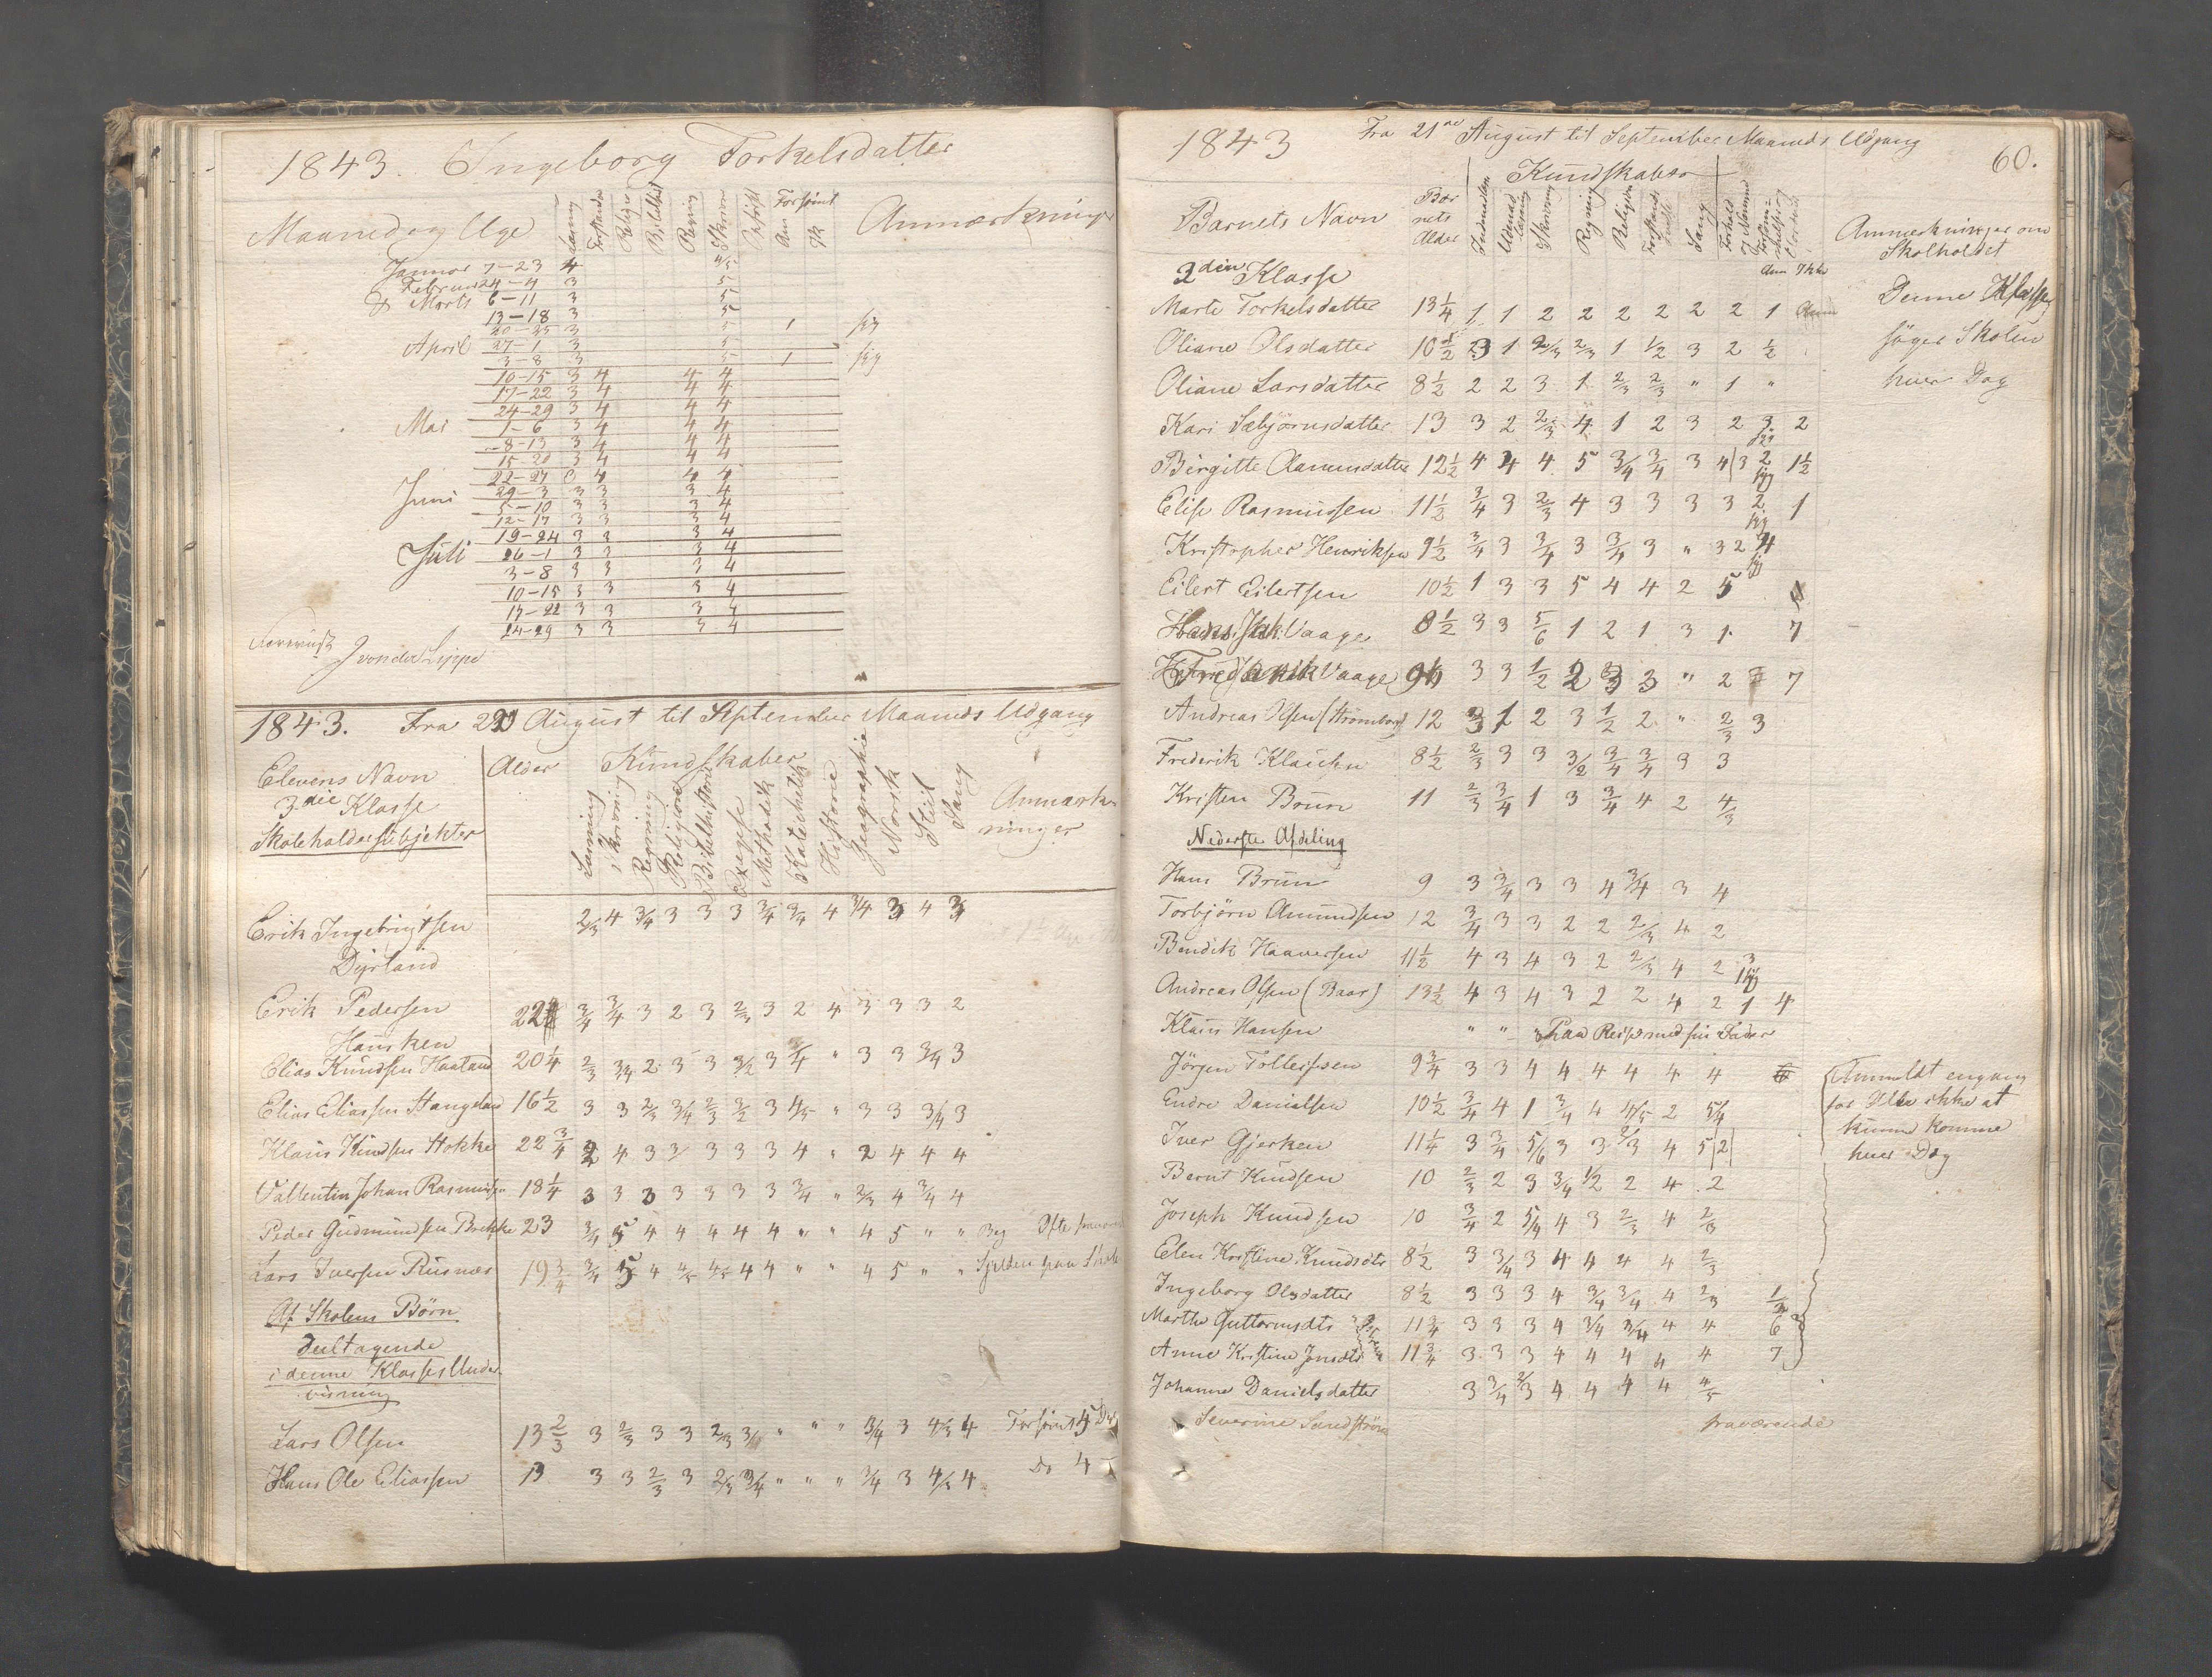 1843. Ingeborg Torkelsdatter
Maaned og Uge Læsning Forstand Religion Bibelhist Regning Skrivn Forsømt Anmærkninger
Januar 7-23 4 4/5
Februar 24-4 3 5
Marts 6-11 3 5
13-18 3 5
20-25 3 5 1 syg
April 27-1 3 5
3-8 3 5 1 syg
10-15 3 4 4 4
17-22 3 4 4 4
24-29 3 4 4 4
Mai 1-6 3 4 4 4
8-13 3 4 4 4
15-20 3 4 4 4
22-27 3 4 4 4
Juni 29-3 3 3 3 4
5-10 3 3 3 4
12-17 3 3 3 4
19-24 3 3 3 4
Juli 26-1 3 3 3 4
3-8 3 3 3 4
10-15 3 3 3 4
17-22 3 3 3 4
24-29 3 3 3 4
J von der Lippe
1843. Fra August til September Maaneds Udgang
Elevens Navn Alder Kundskaber
3die Klasse
Skoleholdersubjekter
Læsning Skrivning Regning Religion Bibelhistorie Exegese Methodik Katechetik Historie Geographie Norsk Stiil Sang Anmærkninger
Erik Ingebrigtsen 2/3 4 3/4 3 3 3 3/4 3/4 4 3/4 3 4 3
Dyrland
Erik Pedersen 22 3/4 3/4 3 2 3 2/3 3 2 4 3 3 3 2
Hausken
Elias Knudsen Haaland 20 1/4 2/3 3/4 2 3 3 3/2 3 " 3 3 3/4 3
Elias Eliassen Stangeland 16 1/2 3 3 2/3 3/4 2/3 3/2 3 4/5 " 3 3 3/4 3
Klaus Knudsen Stokke 22 3/4 4 3 3 3 3 3 4 " 2 4 4 4
Vallentin Johan Rasmussen 18 1/4 3 3 3 3 3 3 3 3/4 " 2/3 4 3/4 4
Peder Gudmundsen Brekke 23 3/4 5 4 4 4 4 4 " " 4 5 " " Ofte
Lars Iversen Risnes 19 3/4 3/4 5 4 4/5 4/5 4 4 " " 4 5 " " Sjelden paa Skole
Af Skolens Børn
Deeltagende
i denne Klasses Under-
visning
Lars Olsen 13 2/3 3 2/3 3 3 2/3 3/4 " " " 3/4 3 4/3 4 Forsømt 5
Hans Ole Eliassen 13 3 3 2/3 3 2/3 3/4 " " " 3/4 3 4/3 4 Do 4
1843 Fra 21de August til September Maaneds Udgang 60.
Kundskaber
Barnets Navn Bar-
nets
Alder
Skrivning Regning Religion Sang Forhold
Anmerkninger om
Skolholdet
2den Klasse
Marte Torkelsdatter 13 1/4 1 1 2 2 2 2 2 2 1
Denne Klasse
søger Skolen
hver Dag
Oliane Olsdatter 10 1/2 3 1 2/3 2/3 1 1/2 3 2 1/2
Oliane Larsdatter 8 1/2 2 2 3 1 2/3 2/3 " 1 "
Kari Sæbjørnsdatter 13 3 2 2/3 4 1 2 3 2 3 2
Birgitte Aamundsdatter 12 1/2 4 4 4 5 3/4 3/4 3 4 3 2 syg 1 1/2
Elise Rasmussen 11 1/2 3/4 3 2/3 4 3 3 3 3 2 syg 1
Kristopher Henriksen 9 1/2 3/4 3 3/4 3 3/4 3 " 3 2 4 syg
Eilert Eilertsen 10 1/2 1 3 3 5 4 4 2 5
Vaage 8 1/2 3 3 5/6 1 2 1 3 1 7
Vaage 9 3 3 1/2 2 3 3 " 2 7
Andreas Olsen (Strømberg) 12 3 1 2 3 1/2 2 " 2/3 3
Frederik Klausen 8 1/2 2/3 3 3 3/2 3/4 3/4 3 3
Kristen Brun 11 2/3 3/4 1 3 3/4 4 2 4/3
Nederste Afdeling
Hans Brun 9 3 3/4 3 3 4 3/4 3 4
Torbjørn Amundsen 12 3/4 3 3 2 2 2/3 4 2
Bendik Haaversen 11 1/2 4 3 4 3 2 2/3 4 2 3
Andreas Olsen (Baar) 13 1/2 4 3 4 3 2 2 4 2 1 4
Klaus Hansen " " " Paa Reise med sin Fader
Jørgen Tollefssen 9 3/4 3 3 4 4 4 4 4 4
Anmeldt engang
for Alle ikke at
kunne komme
hver Dag
Endre Danielsen 10 1/2 3/4 4 1 3/4 4 4/5 2 5/4
Iver Gjerken 11 1/4 3 3/4 5/6 3 3 2/3 4 5 2
Bernt Knudsen 10 2/3 2 3 3/4 1/2 2 4 2
Joseph Knudsen 10 3/4 2 5/4 4 3 2/3 4 2/3
Elen Kristine Knudsdtr 8 1/2 3 3/4 3 4 4 4 4 2/3
Ingeborg Olsdatter 8 1/2 3 3 3 4 3/4 3/4 4 2/3 1/2
Marthe Guttormsdtr 11 3/4 3 3 3 4 3/4 3/4 4 4 6
Anne Kristine Jonsdtr 11 3/4 3 3 3 4 4 4 4 4 7
Johanne Danielsdatter 3 3/4 2/3 4 4 4 4 4/5
Severine Sundstrøm fraværende